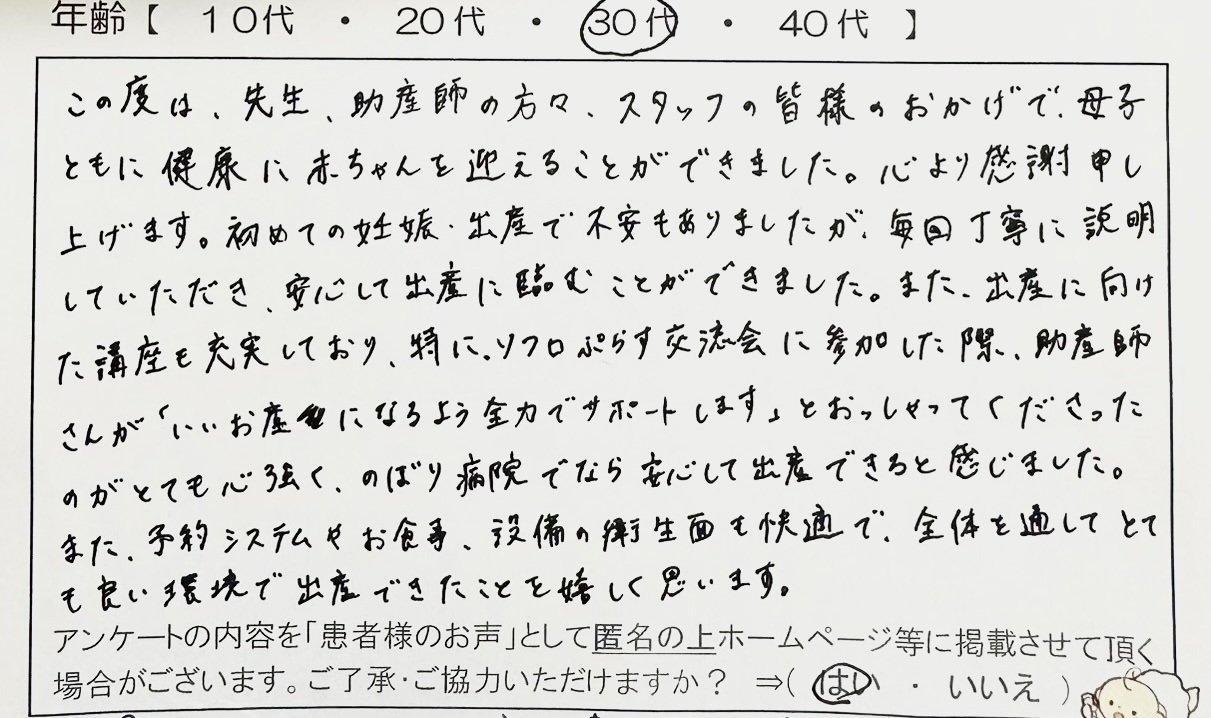 年齢【 10代 ・ 20代 ・ 30代 ・ 40代 】
この度は、先生、助産師の方々、スタッフの皆様のおかげで、母子
ともに健康に赤ちゃんを迎えることができました。心より感謝申し
上げます。初めての妊娠・出産で不安もありましたが、毎回丁寧に説明
していただき、安心して出産に臨むことができました。また、出産に向け
た講座も充実しており、特に、ソフロぷらす交流会に参加した際、助産師
さんが「いいお産になるよう全力でサポートします」とおっしゃってくださった
のがとても心強く、のぼり病院でなら安心して出産できると感じました。
また、予約システムやお食事、設備の衛生面も快適で、全体を通してとて
も良い環境で出産できたことを嬉しく思います。
アンケートの内容を「患者様のお声」として匿名の上ホームページ等に掲載させて頂く
場合がございます。ご了承・ご協力いただけますか？ ⇒( はい ・ いいえ )